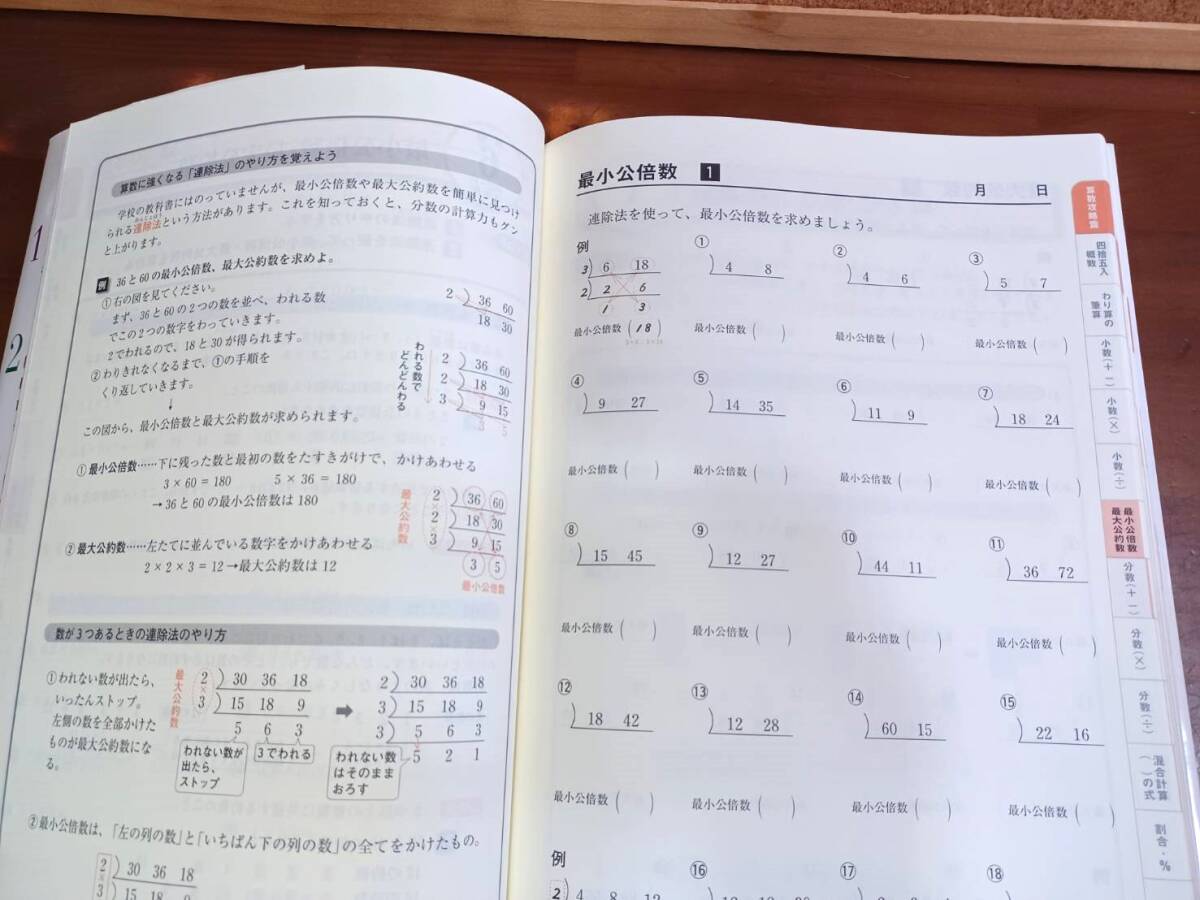 算数に強くなる「連除法」のやり方を覚えよう
学校の教科書にはのっていませんが、最小公倍数や最大公約数を簡単に見つけ
られる連除法という方法があります。これを知っておくと、分数の計算力もグン
と上がります。
例 36と60の最小公倍数、最大公約数を求めよ。
①右の図を見てください。
まず、36と60の2つの数を並べ、われる数
でこの2つの数字をわっていきます。
2でわれるので、18と30が得られます。
②わりきれなくなるまで、①の手順を
くり返していきます。
↓
この図から、最小公倍数と最大公約数が求められます。
2) 36 60
18 30
われる数で
どんどんわる
2) 36 60
2) 18 30
3) 9 15
3 5
①最小公倍数……下に残った数と最初の数をたすきがけで、かけあわせる
3×60=180 5×36=180
→36と60の最小公倍数は180
②最大公約数……左たてに並んでいる数字をかけあわせる
2×2×3=12→最大公約数は12
最大公約数
2) 36 60
×
2) 18 30
×
3) 9 15
3 5
最小公倍数
数が3つあるときの連除法のやり方
①われない数が出たら、
いったんストップ。
左側の数を全部かけた
ものが最大公約数にな
る。
最大公約数
2) 30 36 18
×
3) 15 18 9
5 6 3
われない数が
出たら、
ストップ
3でわれる
➡
2) 30 36 18
3) 15 18 9
3) 5 6 3
5 2 1
われない数
はそのまま
おろす
②最小公倍数は、「左の列の数」と「いちばん下の列の数」の全てをかけたもの。
2) 30 36 18
×
3) 15 18 9
最小公倍数 1
月 日
連除法を使って、最小公倍数を求めましょう。
例
3) 6 18
2) 2 6
1 3
最小公倍数(18)
① ) 4 8
最小公倍数( )
② ) 4 6
最小公倍数( )
③ ) 5 7
最小公倍数( )
④ ) 9 27
最小公倍数( )
⑤ ) 14 35
最小公倍数( )
⑥ ) 11 9
最小公倍数( )
⑦ ) 18 24
最小公倍数( )
⑧ ) 15 45
最小公倍数( )
⑨ ) 12 27
最小公倍数( )
⑩ ) 44 11
最小公倍数( )
⑪ ) 36 72
最小公倍数( )
⑫ ) 18 42
最小公倍数( )
⑬ ) 12 28
最小公倍数( )
⑭ ) 60 15
最小公倍数( )
⑮ ) 22 16
最小公倍数( )
例
2) 4 8 12
⑯
⑰
⑱
算数攻略篇
四捨五入
概数
わり算の
筆算
小数(+−)
小数(×)
小数(÷)
最小公倍数
最大公約数
分数(+−)
分数(×)
分数(÷)
混合計算
( )の式
割合・%
1
2